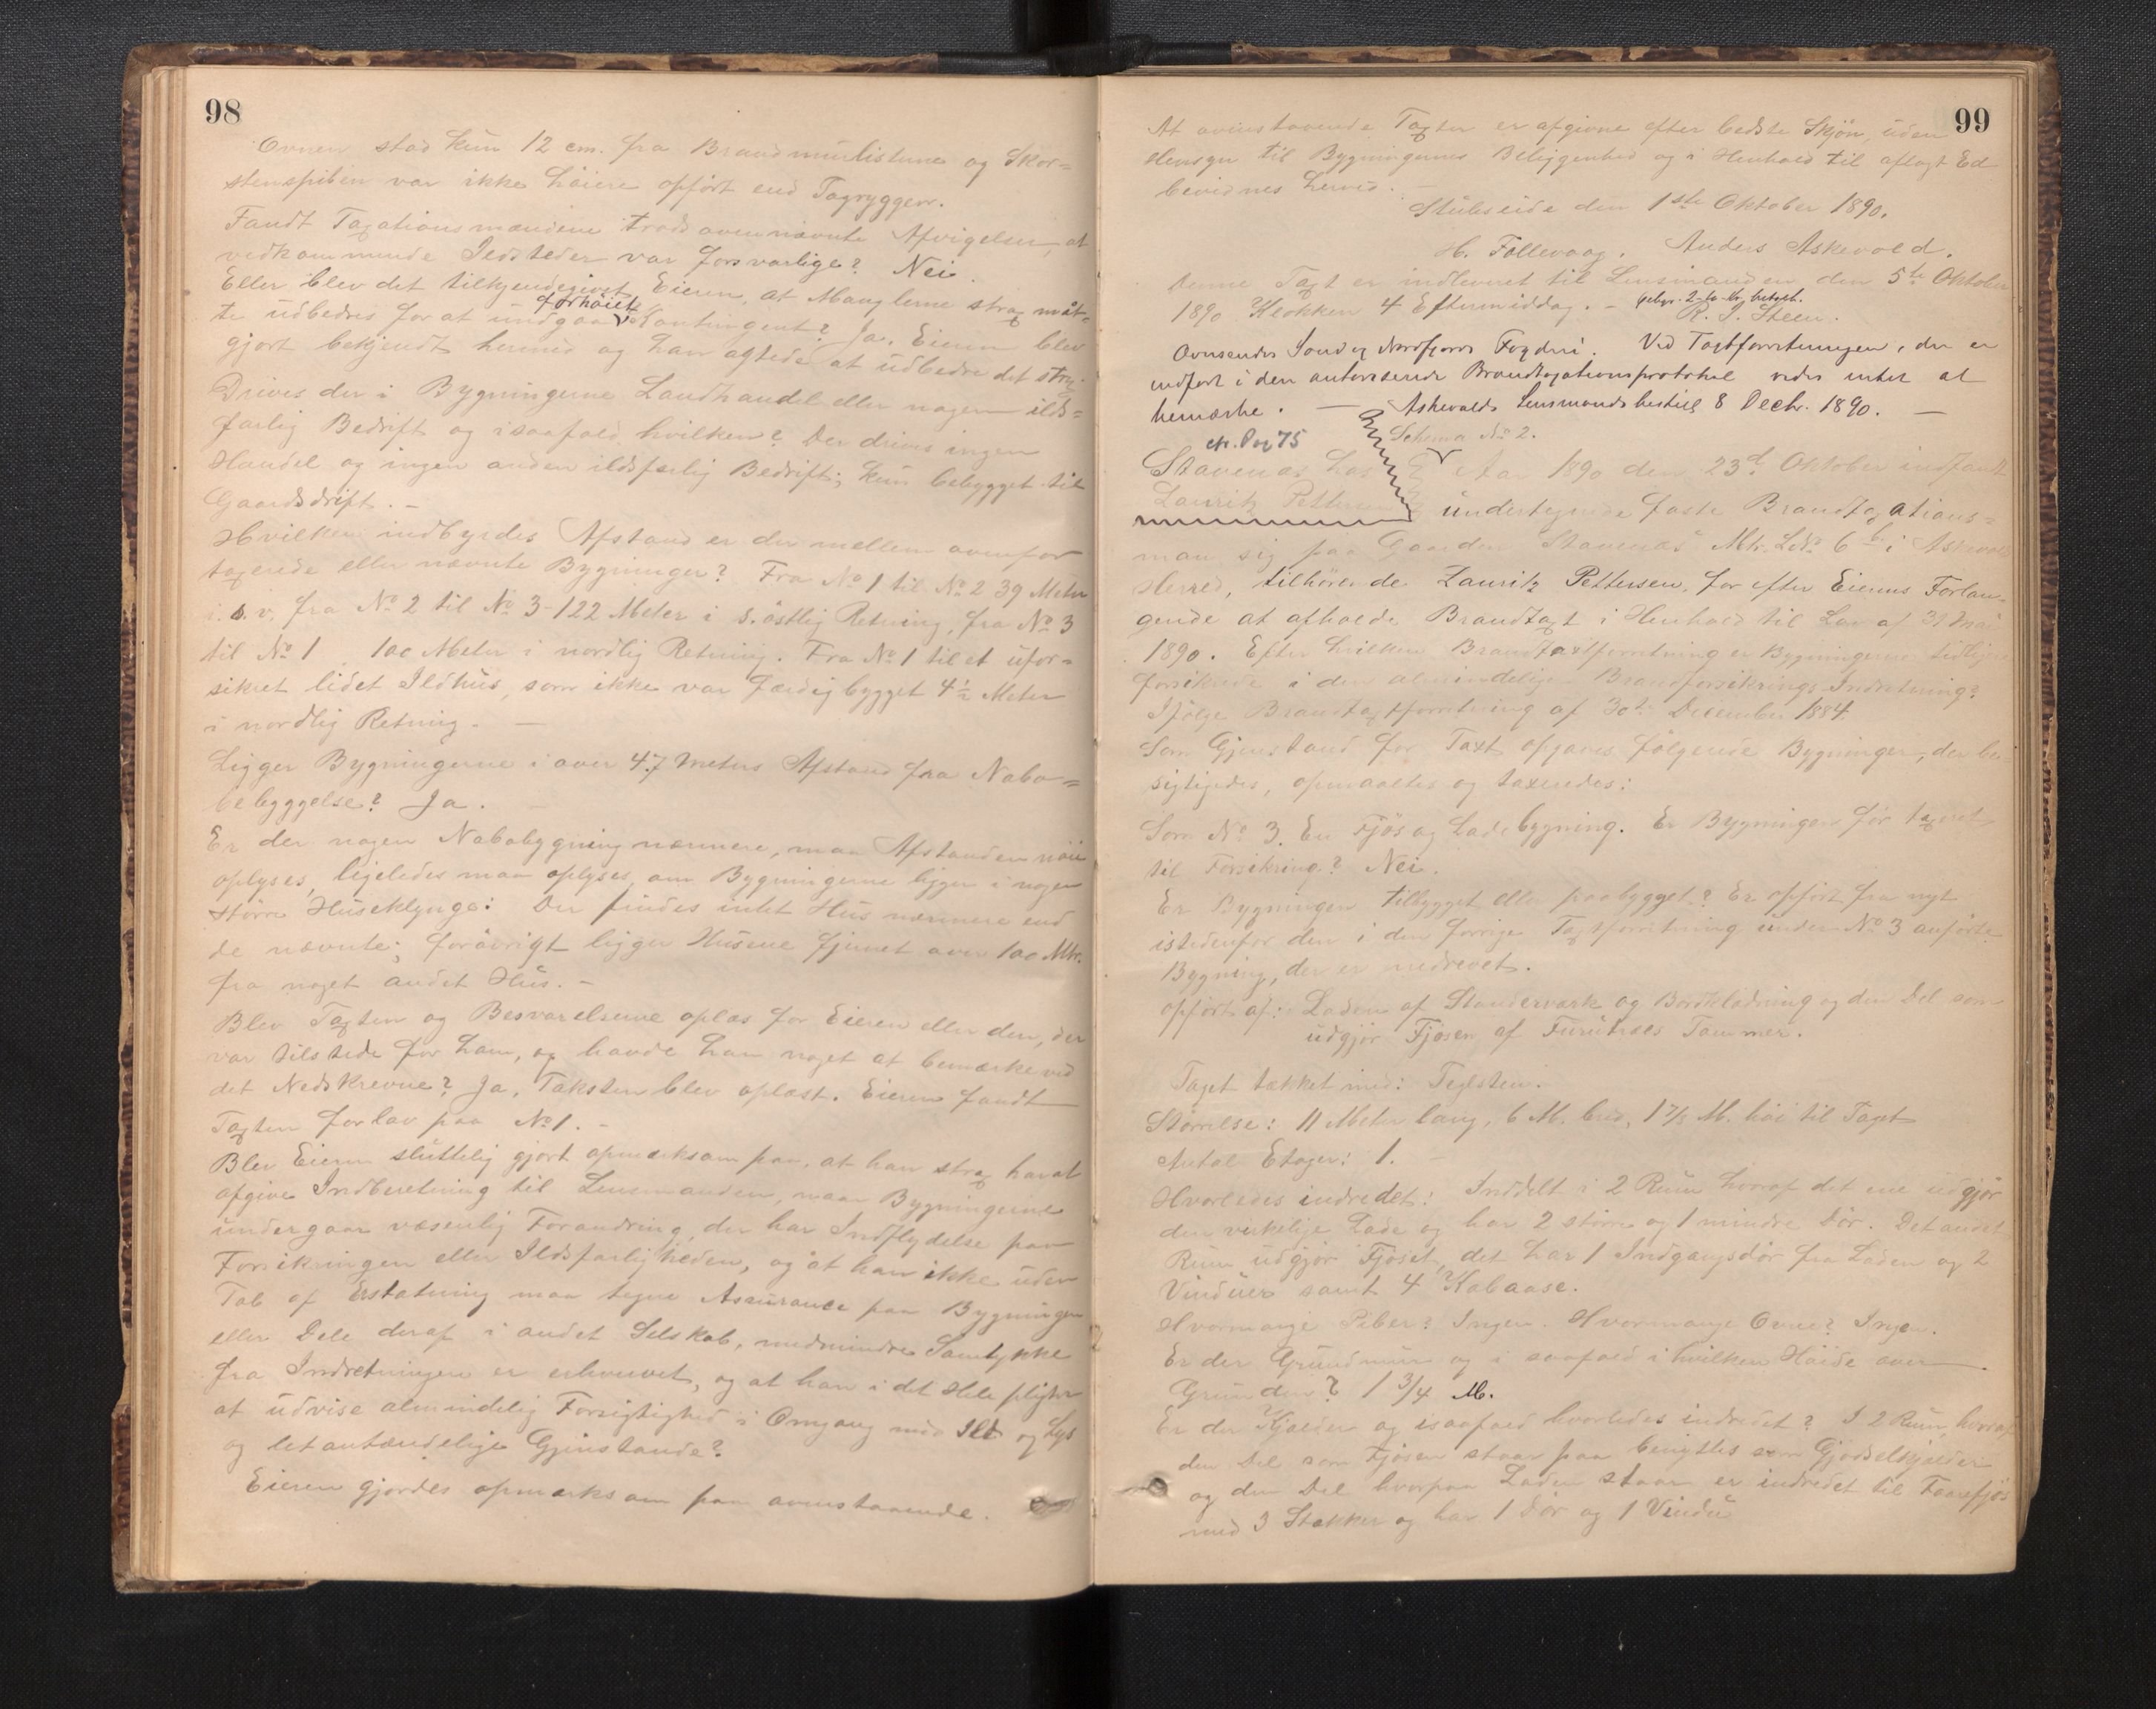 98
Ovnen stod kun 12 cm. fra Brandmurlisterne og Skor=
stenspiben var ikke høiere opført end Tagryggen.
Fandt Taxationsmændene trods ovennævnte Afvigelser, at
vedkommende Ildsteder var forsvarlige? Nei.
Eller blev det tilkjendegivet Eieren, at Manglerne strax maat-
te udbedres for at undgaa forhøiet Kontingent? Ja, Eieren blev
gjort bekjendt hermed og han agtede at udbedre det strax.
Drives der i Bygningerne Landhandel eller nogen ilds=
farlig Bedrift og isaafald hvilken? Der drives ingen
Handel og ingen anden ildsfarlig Bedrift; kun bebygget til
Gaardsdrift. -
Hvilken indbyrdes Afstand er der mellem ovenfor
taxerede eller nævnte Bygninger? Fra No 1 til No 2 39 Meter
i s.v. fra No 2 til No 3 - 122 Meter i s. østlig Retning, fra No 3
til No 1 100 Meter i nordlig Retning. Fra No 1 til et ufor=
sikret lidet Ildhus, som ikke var færdig bygget 4 1/2 Meter
i nordlig Retning. -
Ligger Bygningerne i over 47 Meters Afstand fra Nabo=
bebyggelse? Ja. -
Er der nogen Nabobygning nærmere, maa Afstanden nøie
oplyses, ligeledes maa oplyses, om Bygningerne ligger i nogen
større Huseklynge: Der findes intet Hus nærmere end
de nævnte; forøvrigt ligger Husene fjernet over 100 Mtr.
fra noget andet Hus. -
Blev Taxten og Besvarelserne oplæs for Eieren eller den, der
var tilstede for ham, og havde han noget at bemærke ved
det Nedskrevne? Ja, Taksten blev oplæst. Eieren fandt
Taxten for lav paa No 1. -
Blev Eieren sluttelig gjort opmærksom paa, at han strax har at
afgive Indberetning til Lensmanden, naar Bygningerne
undergaar væsenlig Forandring, der har Indflydelse paa
Forsikringen eller Ildsfarligheden, og at han ikke uden
Tab af Erstatning maa tegne Assurance paa Bygningen
eller Dele deraf i andet Selskab, medmindre Samtykke
fra Indretningen er erhvervet, og at han i det Hele pligter
at udvise almindelig Forsigtighed i Omgang med Ild og Lys
og letantændelige Gjenstande?
Eieren gjordes opmærksom paa ovenstaaende.
99
At ovenstaaende Taxter er afgivne efter bedste Skjøn, uden
Hensyn til Bygningernes Beliggenhed og i Henhold til aflagt Ed
bevidnes herved. -
Stubseide den 1ste Oktober 1890.
H. Follevaag. Anders Askevold.
Denne Taxt er indleveret til Lensmanden den 5te Oktober
1890 Klokken 4 Eftermiddag. - Gebyr. 2 - to Kr. betalt.
R. J. Steen.
Oversendes Sønd og Nordfjords Fogderi. Ved Taxtforretningen, der er
indført i den autoriserede Brandtaxationsprotokol vides intet at
bemærke. - Askevolds Lensmandsbestill 8 Decbr. 1890. -
ctr. Pag 75
Schema No 2.
Stavenæs hos Aar 1890 den 23d Oktober indfandt
Lauritz Pettersen undertegnede faste Brandtaxations=
mænd sig paa Gaarden Stavenæs Mtr. Lødo 6 b. i Askevold
Herred, tilhørende Lauritz Pettersen, for efter Eierens Forlan-
gende at afholde Brandtaxt i Henhold til Lov af 31 Mai
1890. Efter hvilken Brandtaxtforretning er Bygningerne tidligere
forsikrede i den almindelige Brandforsikrings-Indretning?
Ifølge Brandtaxtforretning af 30te December 1884.
Som Gjenstand for Taxt opgaves følgende Bygninger, der be-
sigtigedes, opmaaltes og taxeredes:
Som No 3. En Fjøs og Ladebygning. Er Bygningen før taxeret
til Forsikring? Nei.
Er Bygningen tilbygget eller paabygget? Er opført fra nyt
istedenfor den i den forrige Taxtforretning under No 3 anførte
Bygning, der er nedrevet.
opført af: Laden af Stenderværk og Bordklædning og den Del som
udgjør Fjøsen af Furutræes Tømmer.
Taget tækket med: Teglsten.
Størrelse: 11 Meter lang, 6 M. bred, 1 7/8 M. høi til Taget
Antal Etager: 1. -
Hvorledes indredet: Inddelt i 2 Rum hvoraf det ene udgjør
den virkelige Lade og har 2 større og 1 mindre Dør. Det andet
Rum udgjør Fjøset, det har 1 Indgangsdør fra Laden og 2
Vinduer samt 4 Kobaase.
Hvormange Piber? Ingen. Hvormange Ovne? Ingen.
Er der Grundmur og i saafald i hvilken Høide over
Grunden? 1 3/4 M.
Er der Kjælder og isaafald hvorledes indredet? I 2 Rum, hvoraf
den Del som Fjøsen staar paa benyttes som Gjødselkjælder
og den Del hvorpaa Laden staar er indredet til Faarefjøs
med 3 Stakker og har 1 Dør og 1 Vindu